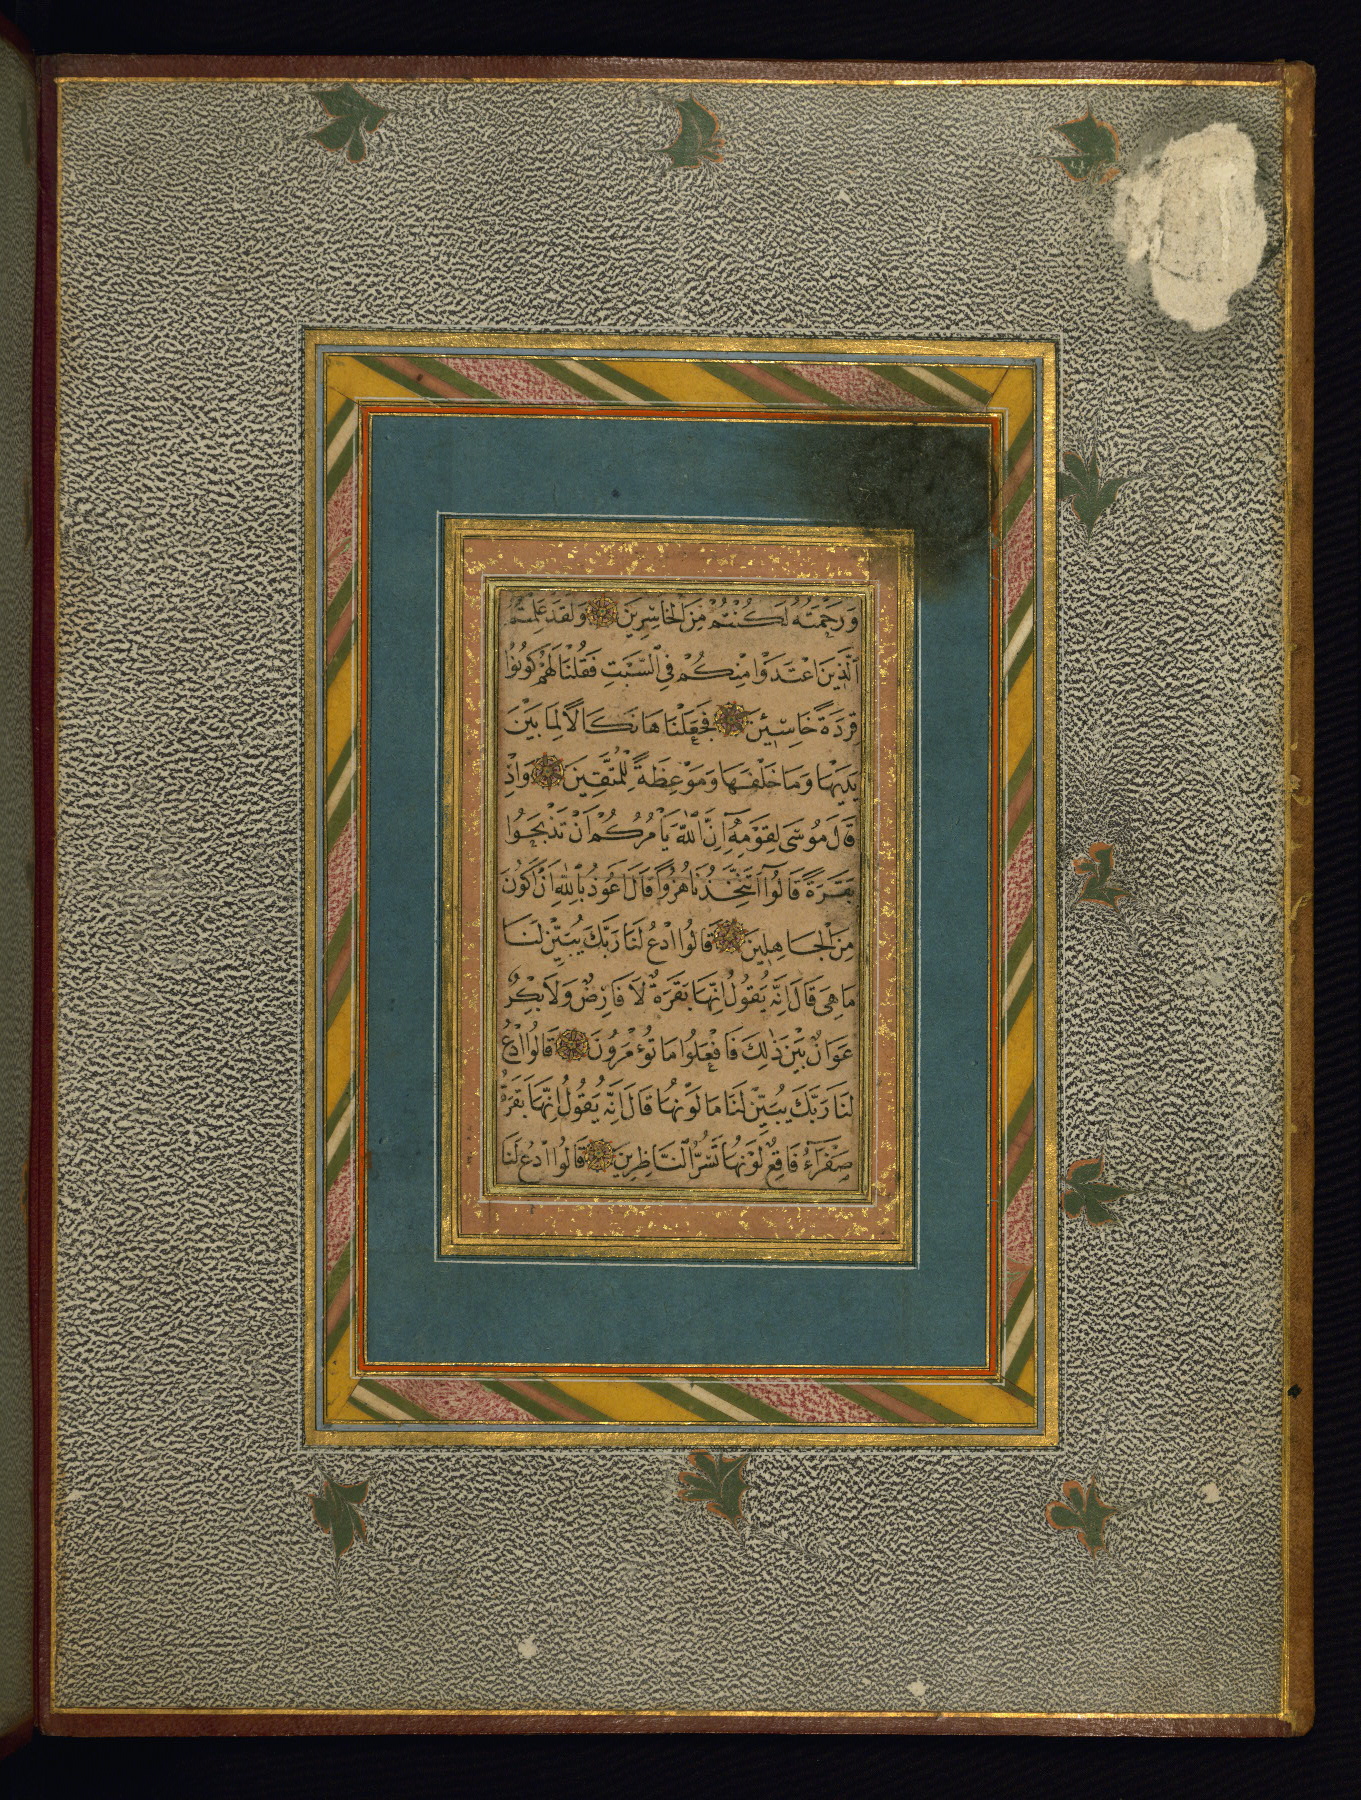 وَرَحْمَتُهُ لَكُنْتُمْ مِنَ الْخَاسِرِينَ وَلَقَدْ عَلِمْتُمُ
الَّذِينَ اعْتَدَوْا مِنْكُمْ فِي السَّبْتِ فَقُلْنَا لَهُمْ كُونُوا
قِرَدَةً خَاسِئِينَ فَجَعَلْنَاهَا نَكَالًا لِمَا بَيْنَ
يَدَيْهَا وَمَا خَلْفَهَا وَمَوْعِظَةً لِلْمُتَّقِينَ وَاِذْ
قَالَ مُوسَى لِقَوْمِهِ اِنَّ اللَّهَ يَأْمُرُكُمْ اَنْ تَذْبَحُوا
بَقَرَةً قَالُوا اَتَتَّخِذُنَا هُزُوًا قَالَ اَعُوذُ بِاللَّهِ اَنْ اَكُونَ
مِنَ الْجَاهِلِينَ قَالُوا ادْعُ لَنَا رَبَّكَ يُبَيِّنْ لَنَا
مَا هِيَ قَالَ اِنَّهُ يَقُولُ اِنَّهَا بَقَرَةٌ لَا فَارِضٌ وَلَا بِكْرٌ
عَوَانٌ بَيْنَ ذٰلِكَ فَافْعَلُوا مَا تُؤْمَرُونَ قَالُوا ادْعُ
لَنَا رَبَّكَ يُبَيِّنْ لَنَا مَا لَوْنُهَا قَالَ اِنَّهُ يَقُولُ اِنَّهَا بَقَرَةٌ
صَفْرَآءُ فَاقِعٌ لَوْنُهَا تَسُرُّ النَّاظِرِينَ قَالُوا ادْعُ لَنَا